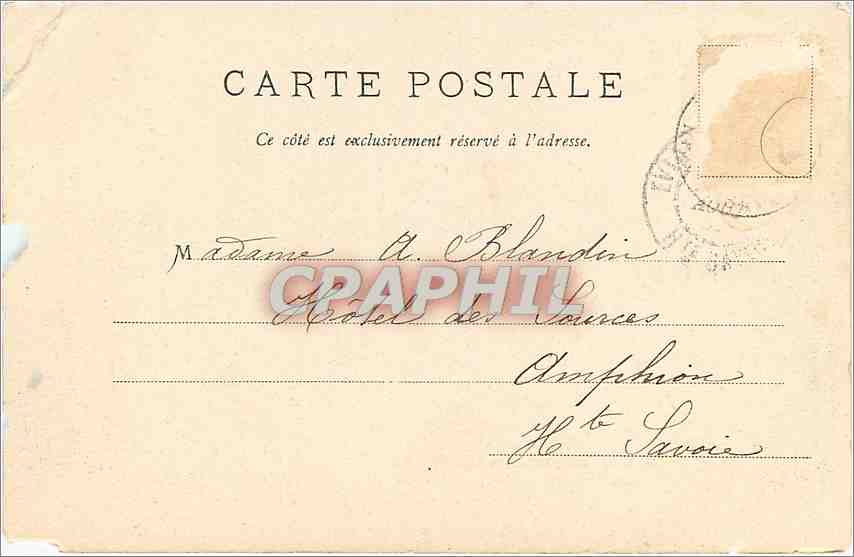 CARTE POSTALE
Ce côté est exclusivement réservé à l'adresse.
Madame A. Blandin
CPAPHIL
Hôtel des Sources
Amphion
Hte Savoie